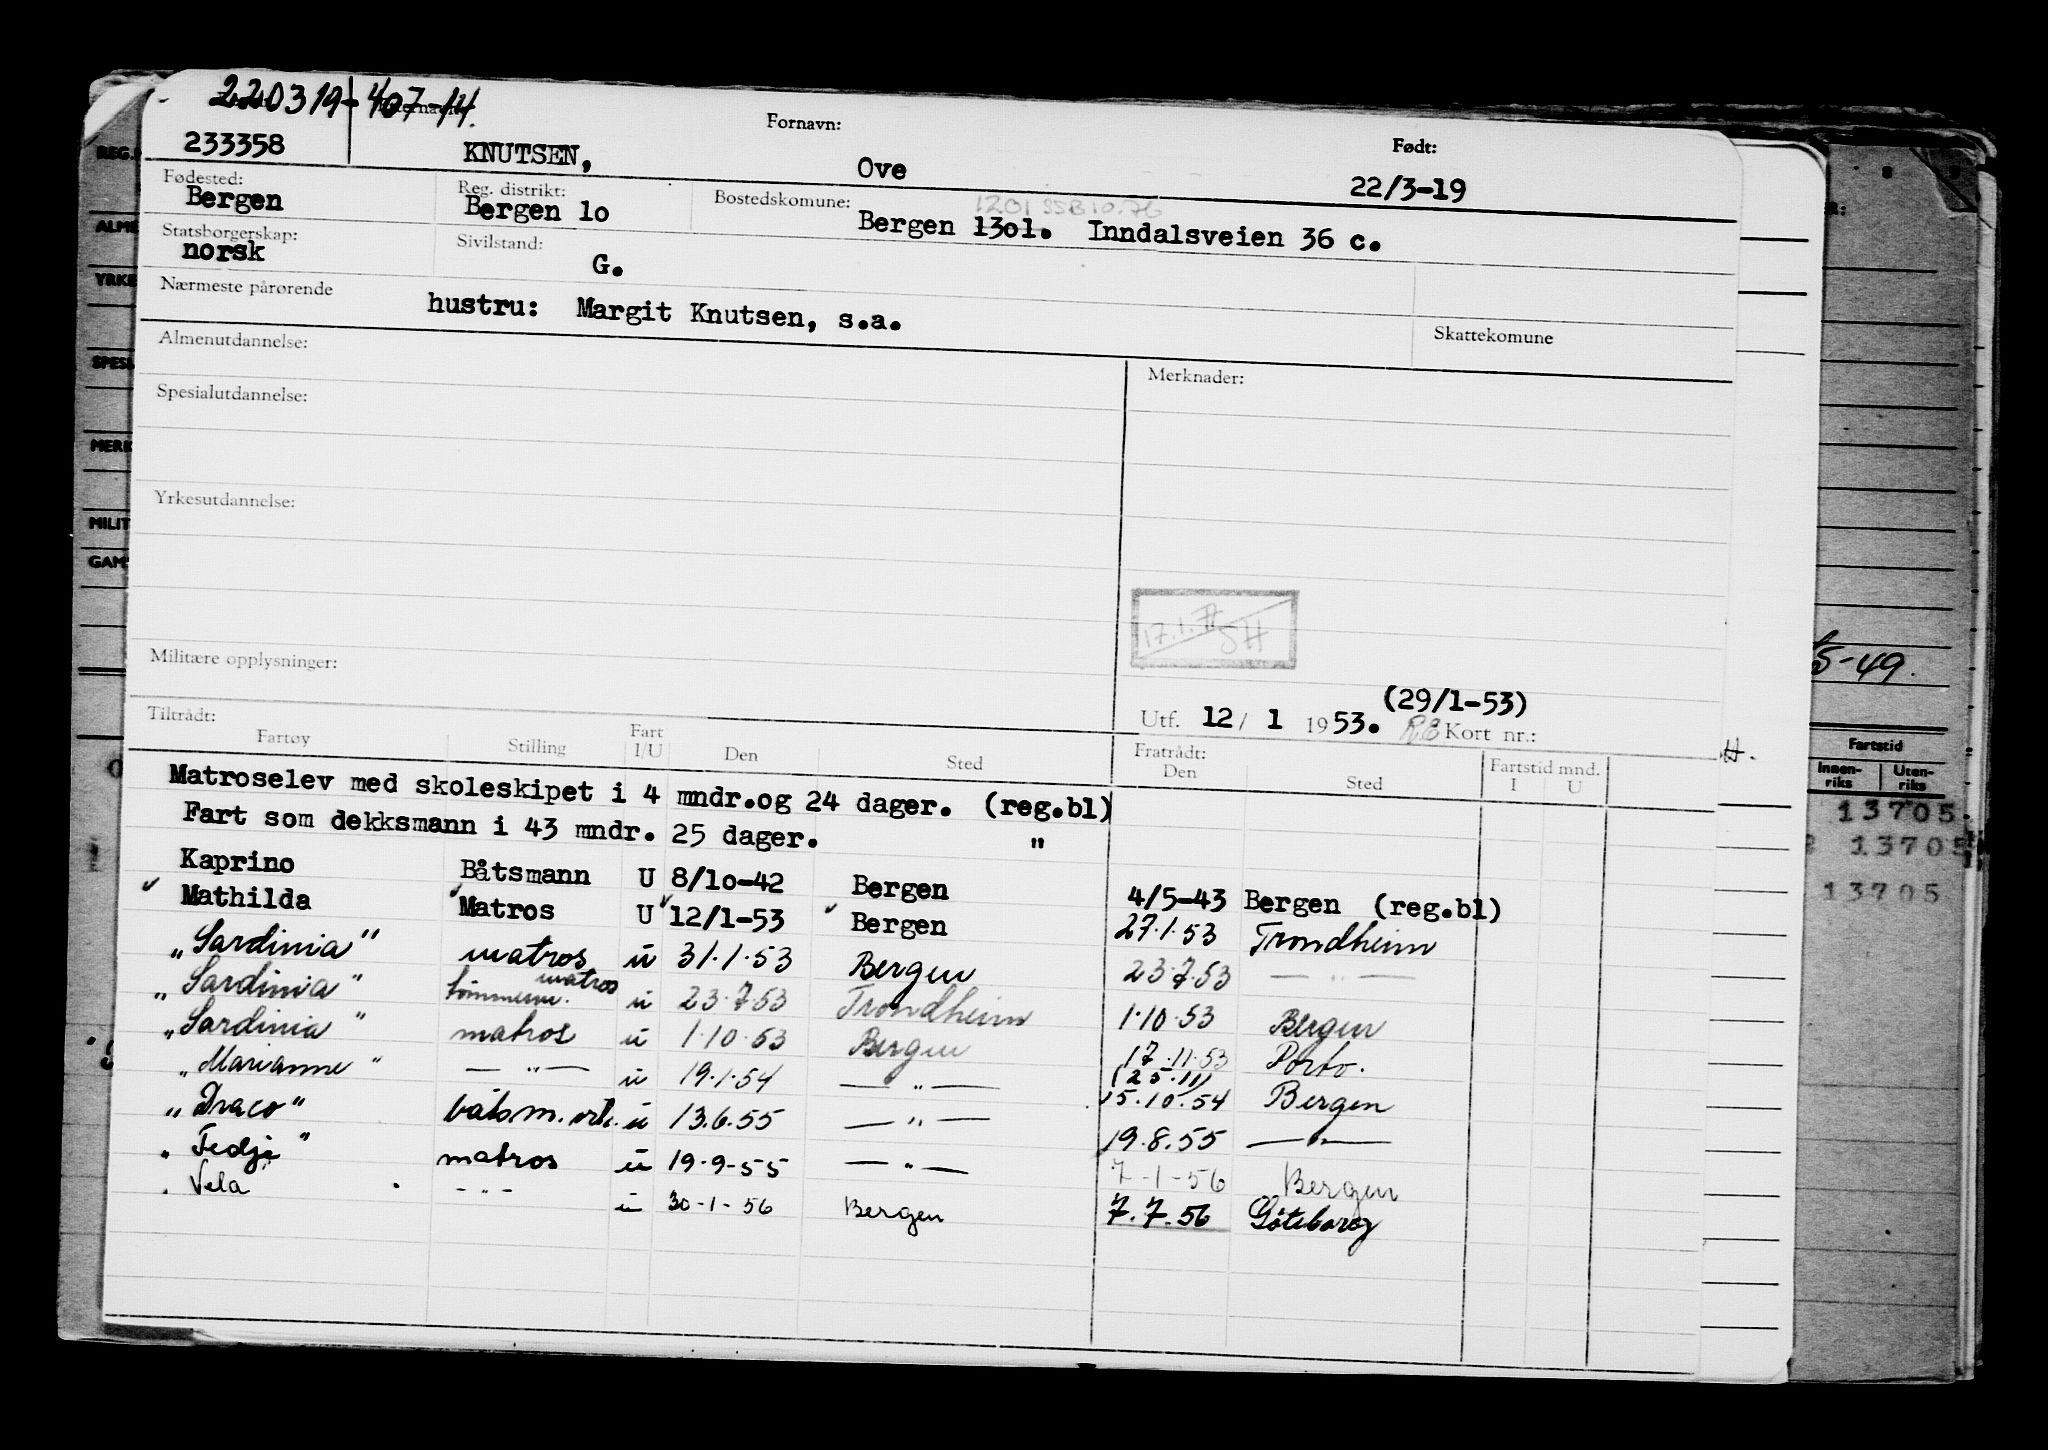 220319-407-14.
Fornavn: Født:
233358 KNUTSEN, Ove 22/3-19
Fødested: Reg. distrikt: Bostedskomune: 1201 SSB 10.76
Bergen Bergen 1o Bergen 13o1. Inndalsveien 36 c.
Statsborgerskap: Sivilstand:
norsk G.
Nærmeste pårørende hustru: Margit Knutsen, s.a.
Skattekomune
Almenutdannelse: Merknader:
Spesialutdannelse:
Yrkesutdannelse:
17.1. SH
Militære opplysninger:
(29/1-53)
Utf. 12/ 1 1953. Kort nr.:
Tiltrådt: Fratrådt:
Fartøy Stilling Fart I/U Den Sted Den Sted Fartstid mnd. I U
Matroselev med skoleskipet i 4 mndr.og 24 dager. (reg.bl)
Fart som dekksmann i 43 mndr. 25 dager. "
Kaprino Båtsmann U 8/1o-42 Bergen 4/5-43 Bergen (reg.bl)
Mathilda Matros U 12/1-53 Bergen 27.1.53 Trondheim
"Sardinia" matros u 31.1.53 Bergen 23.7.53 — " —
"Sardinia" tømmerm. matros u 23.7.53 Trondheim 1.10.53 Bergen
"Sardinia" matros u 1.10.53 Bergen 17.11.53 Porto.
(25.11)
"Marianne" — " — u 19.1.54 — " — 15.10.54 Bergen
"Draco" båtsm. u 13.6.55 — " — 19.8.55 — " —
"Fedje" matros u 19.9-55 — " — 7-1-56 Bergen
Vela - " - u 30-1-56 Bergen 7.7.56 Göteborg
5-49.
Fartstid
Innen-riks Uten-riks
13705
13705
13705